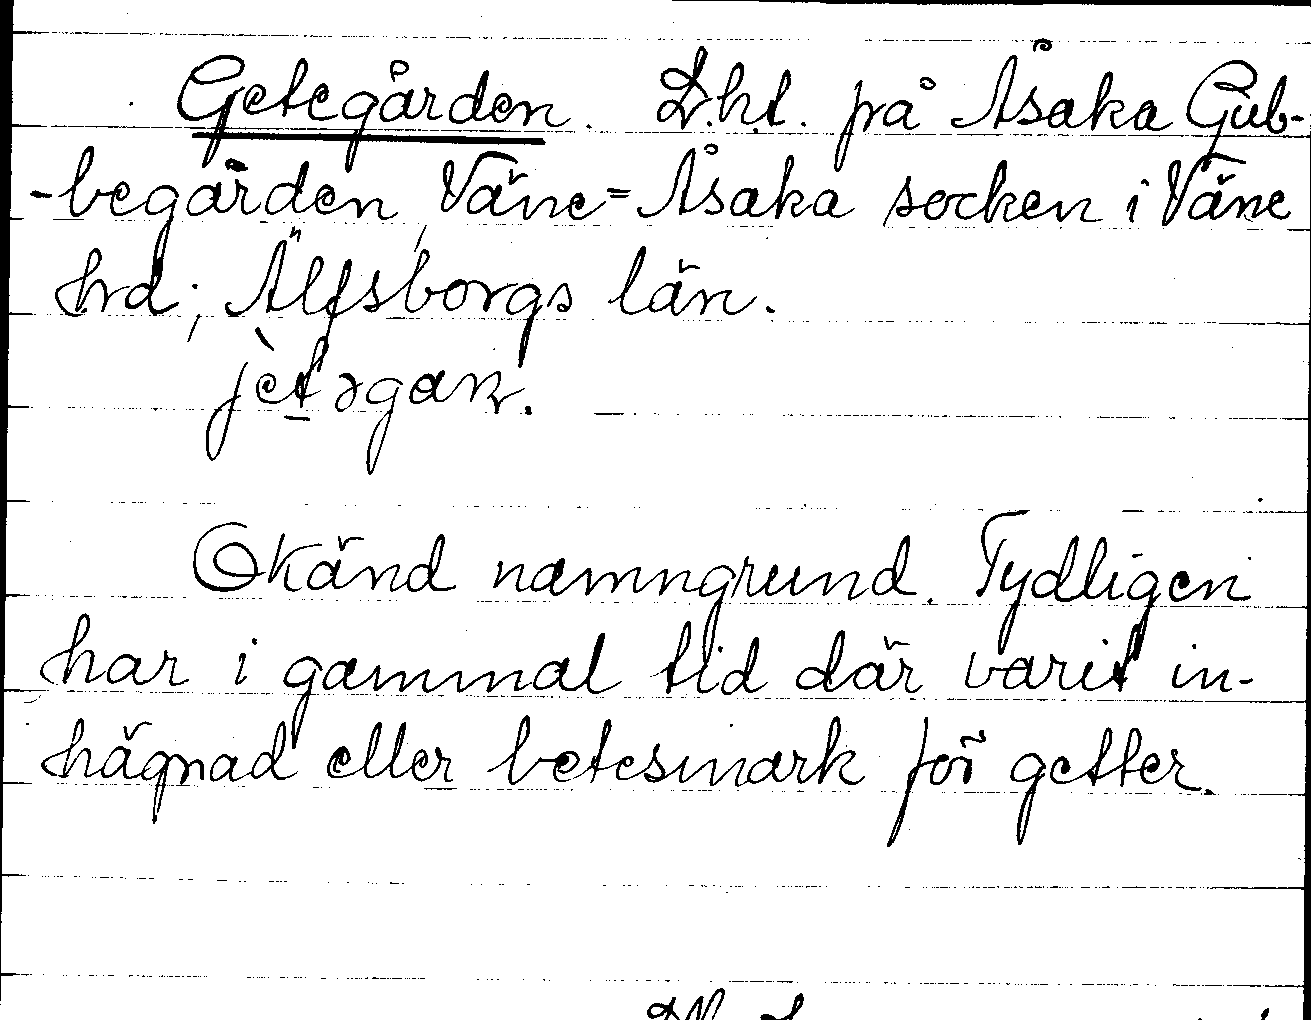 Getegården. L.h.t. på Åsaka Gub-
-begården, Väne=Åsaka socken i Väne
hrd; Älfsborgs län.
jètəgaɳ.
Okänd namngrund. Tydligen
har i gammal tid där varit in-
hägnad eller betesmark för getter.